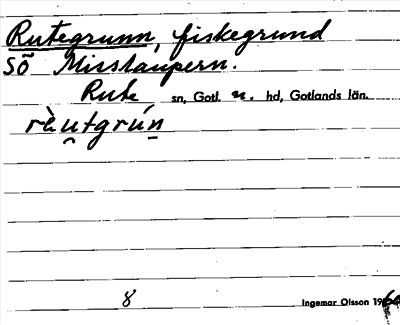 Rutegrunn, fiskegrund
SÖ Misslaupern.
Rute sn, Gotl. n. hd, Gotlands län.
rèu̯tgrún̲
8 Ingemar Olsson 1960